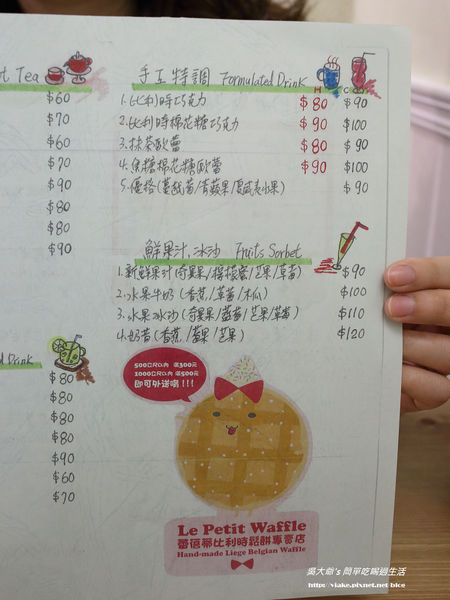 t Tea
$60
$70
$60
$70
$90
$80
$80
$90
d Drink
$80
$80
$80
$80
$90
$60
$70
手工特調 Formulated Drink
H
1.比利時巧克力 $80 $90
2.比利時棉花糖巧克力 $90 $100
3.抹茶歐蕾 $80 $90
4.焦糖棉花糖歐蕾 $90 $100
5.優格(蔓越莓/青蘋果/夏威夷水果) $90
鮮果汁.冰沙 Fruits Sorbet
1.新鮮果汁(奇異果/檸檬蜜/芒果/草莓) $90
2.水果牛奶(香蕉/草莓/木瓜) $100
3.水果冰沙(奇異果/藍莓/芒果/草莓) $110
4.奶昔(香蕉/莓果/芒果) $120
500公尺以內 滿300元
1000公尺以內 滿500元
即可外送哦!!!
Le Petit Waffle
蕾蓓蒂比利時鬆餅專賣店
Hand-made Liege Belgian Waffle
吳大爺's 簡單吃喝過生活
http://viake.pixnet.net/blog